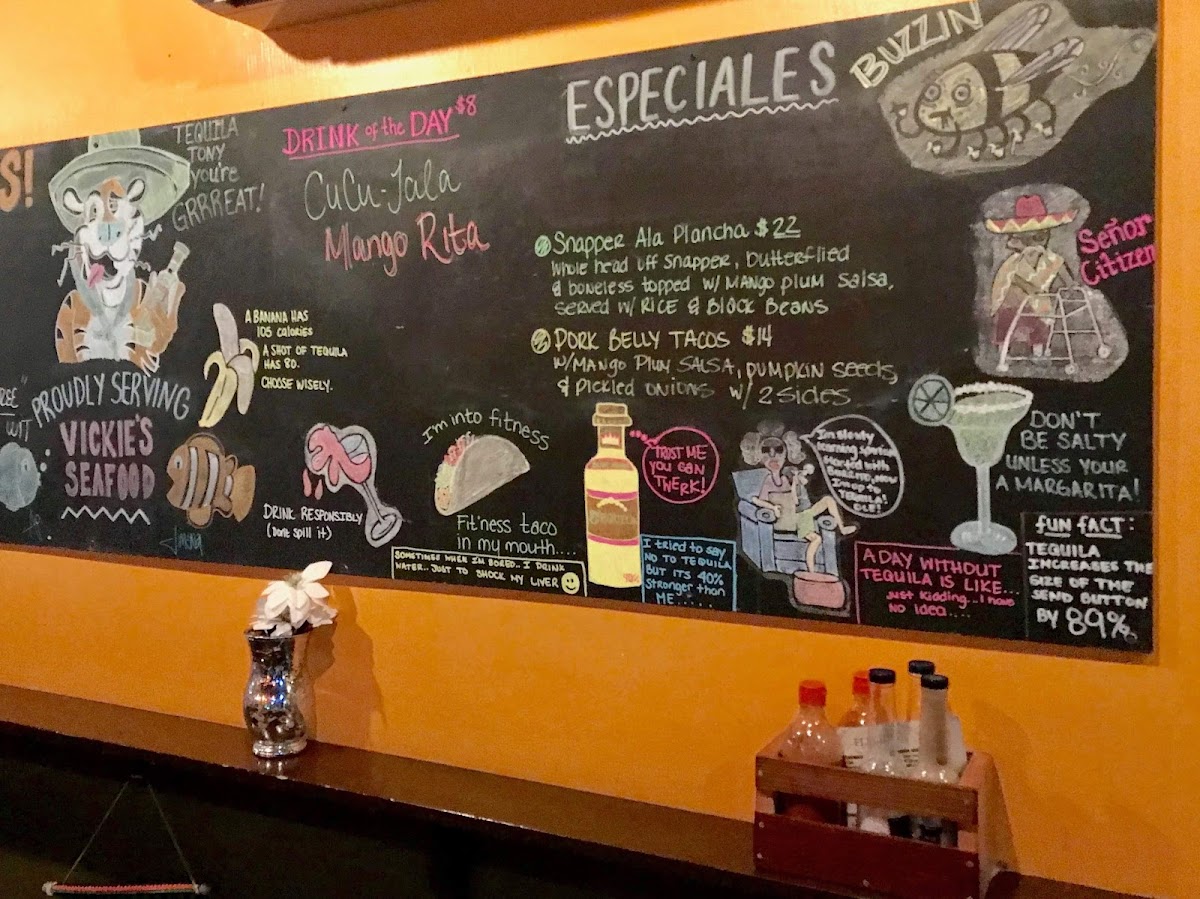 S!
TEQUILA
TONY
you're
GRRREAT!
DRINK of the DAY $8
CuCu-Jala
Mango Rita
ESPECIALES
BUZZIN
Snapper Ala Plancha $22
Whole head off Snapper, Butterflied
& boneless topped w/ Mango Plum Salsa,
Served w/ Rice & Black Beans
PORK BELLY TACOS $14
w/Mango Plum Salsa, Pumpkin Seeds,
& Pickled Onions w/ 2 sides
Señor
Citizen
A BANANA HAS
105 calories
A SHOT OF TEQUILA
HAS 80.
CHOOSE WISELY.
WIT
PROUDLY SERVING
VICKIE'S
SEAFOOD
DRINK RESPONSIBLY
(Dont spill it)
I'm into fitness
Fit'ness taco
in my mouth....
SOMETIMES WHEN I'M BORED.. I DRINK
WATER.. JUST TO SHOCK MY LIVER
TRUST ME
YOU CAN
TWERK!
I tried to say
NO TO TEQUILA
BUT ITS 40%
Stronger than
ME.....
I'm slowly
learning Spanish
Started with
now
I'm up to
TEQUILA!
OLE!
A DAY WITHOUT
TEQUILA IS LIKE...
just kidding...I have
NO Idea....
DON'T
BE SALTY
UNLESS YOUR
A MARGARITA!
FUN FACT:
TEQUILA
INCREASES THE
SIZE OF THE
SEND BUTTON
BY 89%